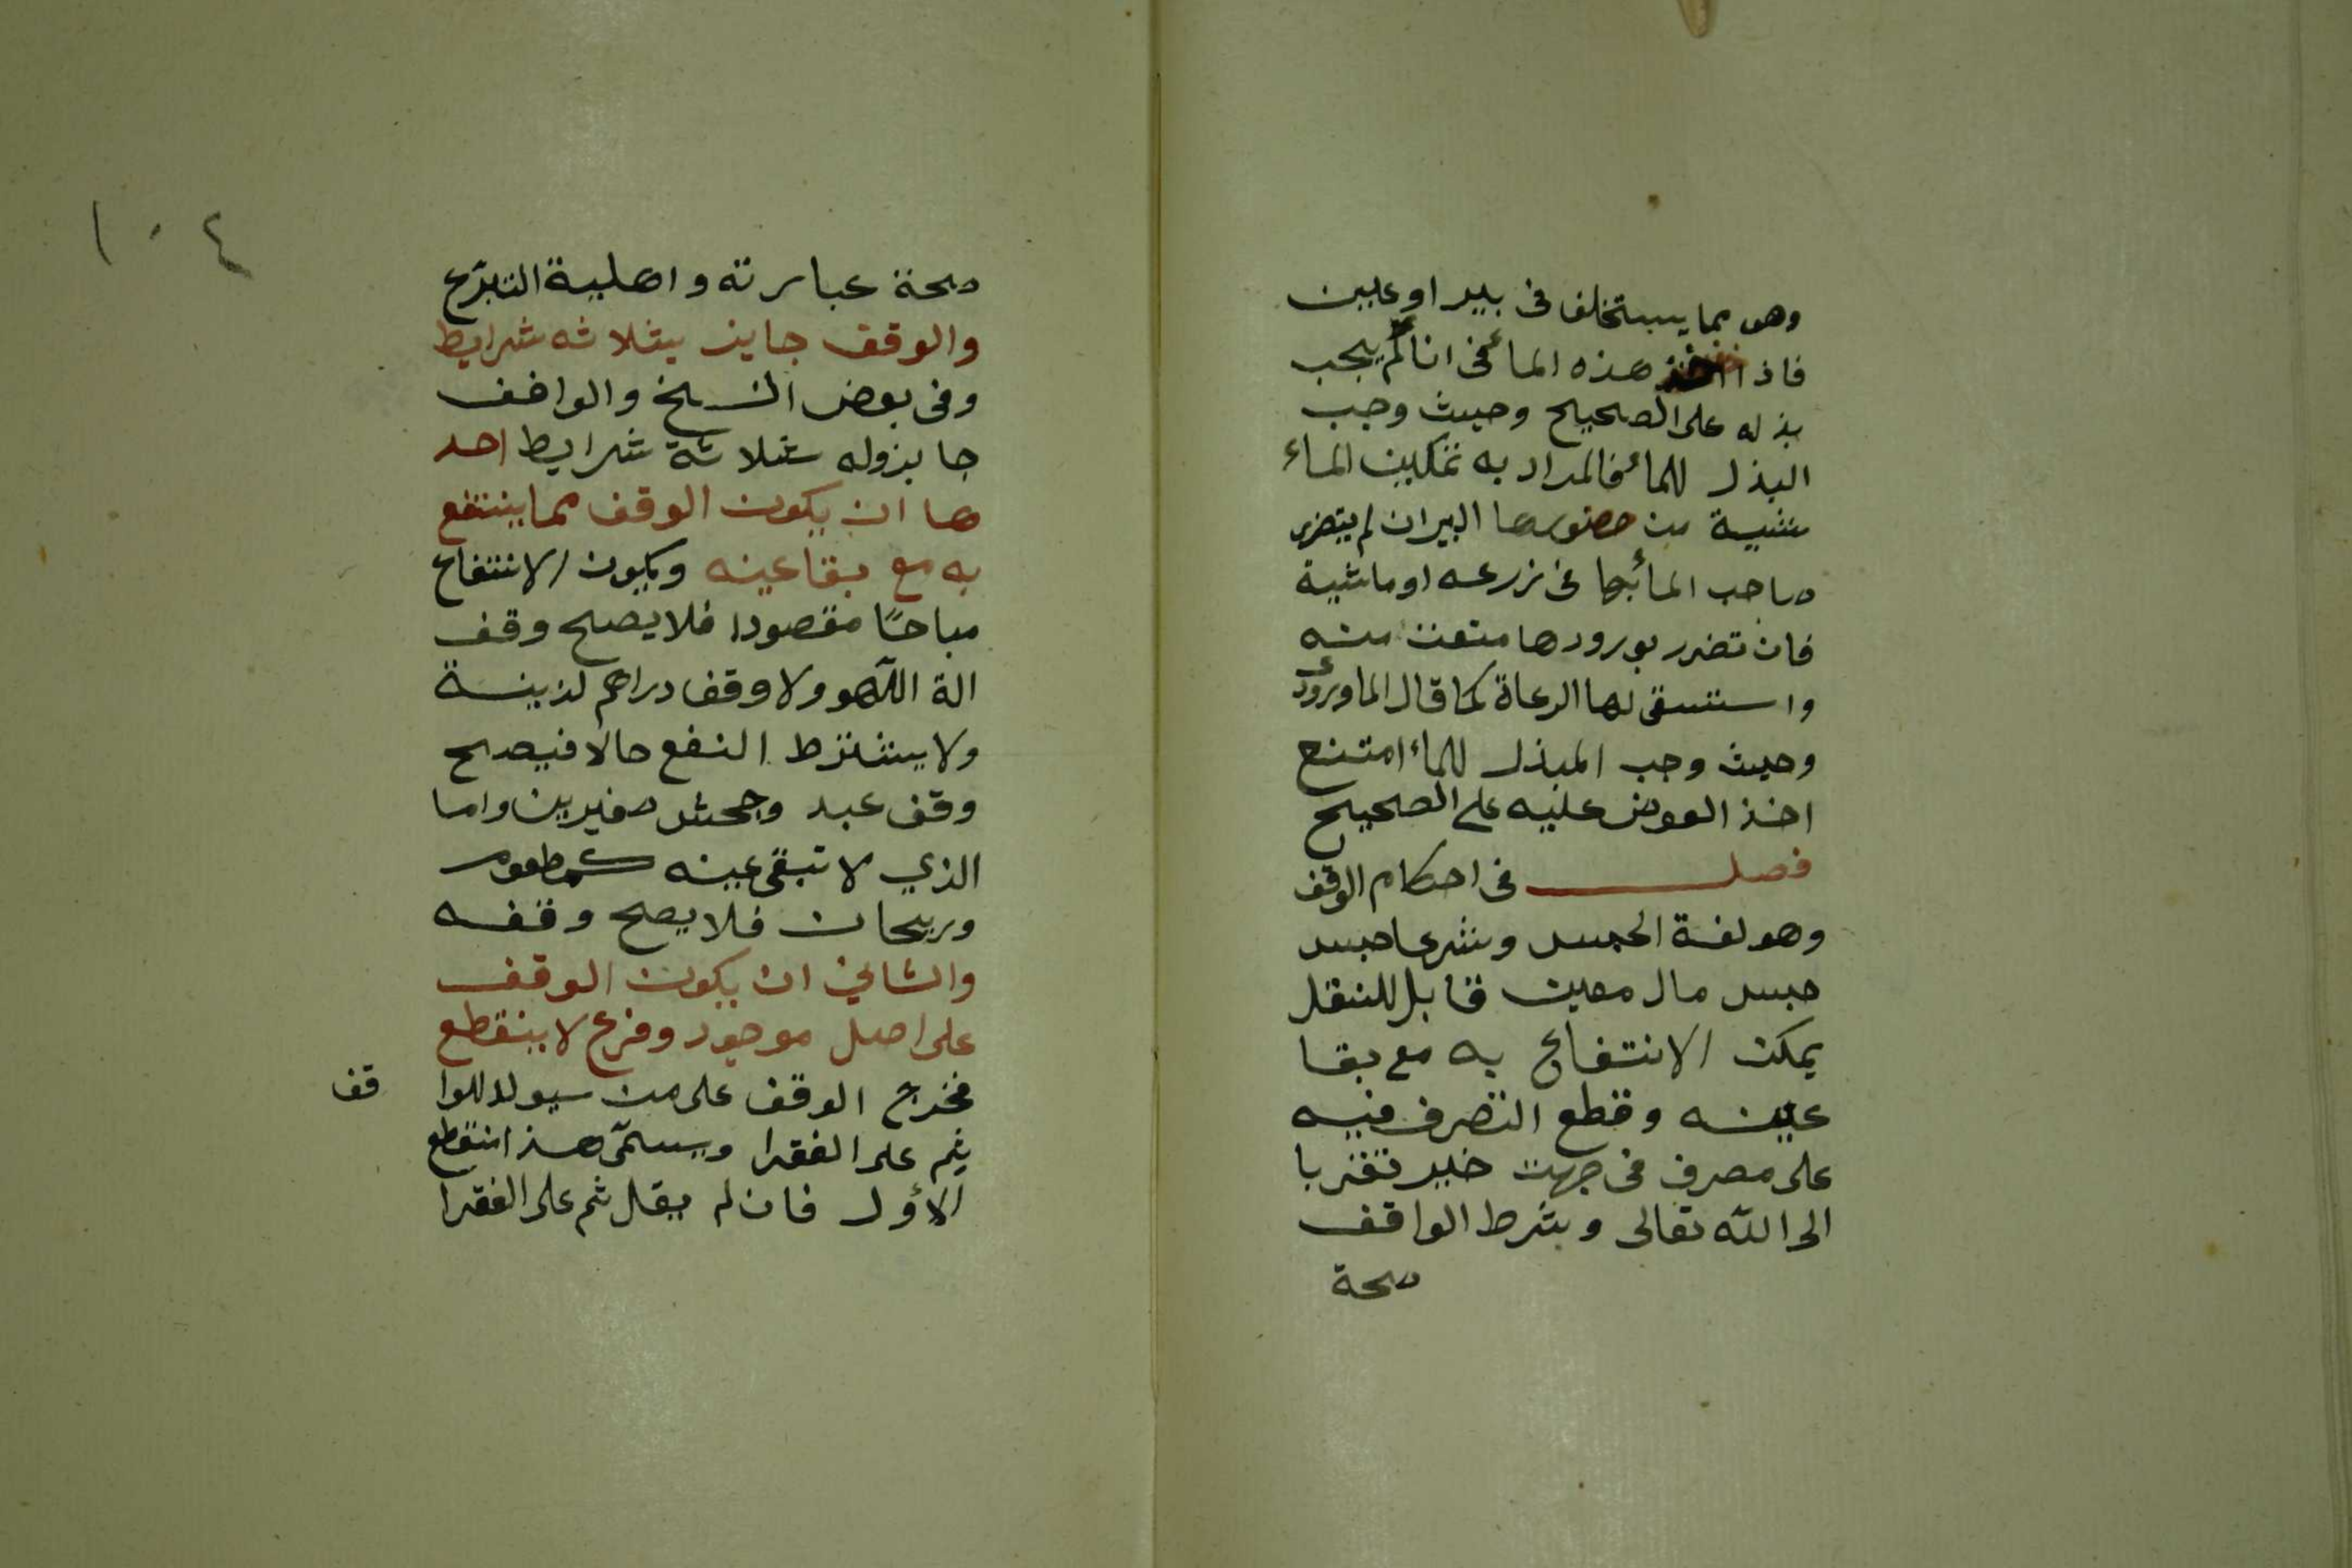 وهو مما يستخلف فى بير او عين
فاذا اخذ هذه الماء فى انا لم يجب
بذله على الصحيح وحيث وجب
البذل للماء فالمراد به تمكين الماء
شية من حضورها البيران لم يتضرر
صاحب الماء بها فى زرعه اوماشية
فان تضرر بورودها منعت منه
واستسقى لها الرعاة كما قال الماوردى
وحيث وجب المبذل للماء امتنع
اخذ العوض عليه على الصحيح
فصل فى احكام الوقف
وهو لغة الحبس وشرعا حبس
حبس مال معين قابل للنقل
يمكن الانتفاع به مع بقا
عينه وقطع التصرف فيه
على مصرف فى جهت خير تقربا
الى الله تعالى وبشرط الواقف
صحة
١٠٤
صحة عبارته واهلية التبرّع
والوقف جايز بثلاثه شرايط
وفى بعض النسخ والواقف
جا بزوله بثلاثة شرايط احد
ها ان يكون الوقف مما ينتفع
به مع بقا عينه ويكون الانتفاع
مباحًا مقصودا فلا يصح وقف
الة اللهو ولا وقف دراهم لزينة
ولا يشترط النفع حالا فيصح
وقف عبد وجحش صغيرين واما
الذي لا تبقى عينه كمطعوم
وريحان فلا يصح وقفه
والثاني ان يكون الوقف
على اصل موجود وفرع لا ينقطع
فخرج الوقف على من سيولد للوا قف
ثم على الفقرا ويسمّى هذا منقطع
الاؤل فان لم يقل ثم على الفقرا